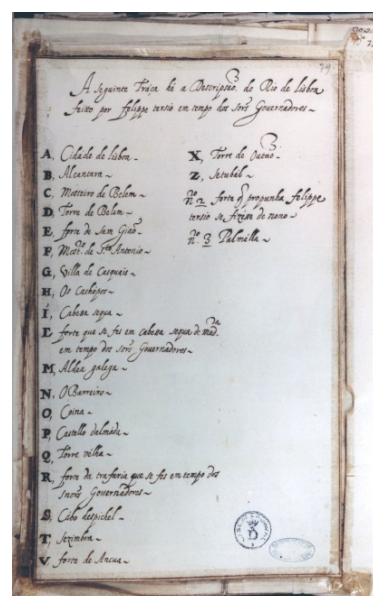 79
A seguinte Traça hé a Descripsão, do Rio de lisboa
feitto por felippe tersio em tempo dos sorẽs Governadores ~
A, Cidade de lisboa ~
B, Alcantara ~
C, Mosteiro de Belem ~
D, Torre de Belem ~
E, forte de Sam Gião ~
F, Mostr.º de S.to Antonio ~
G, Villa de Casquais ~
H, Os Cachopos ~
I, Cabesa sequa ~
L, forte que se fes em cabesa sequa de mad.ra
em tempo dos sorẽs Governadores ~
M, Aldea galega ~
N, O Barreiro ~
O, Coina ~
P, Castello dalmada ~
Q, Torre velha ~
R, forte da trafaria que se fes em tempo dos
Governadores ~
S, Cabo despichel ~
T, Sezimbra ~
V, forte de
X, Torre do
Z, Setubal ~
nº 2 forte q̃ propunha felippe
tersio se fizese de novo ~
nº 3 Palmella ~